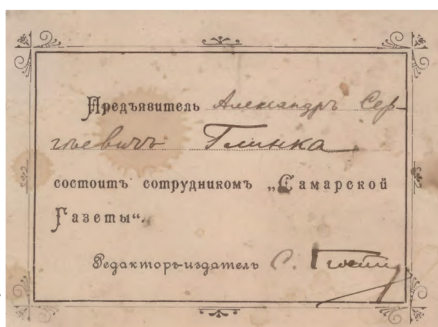 Предъявитель Александръ Сер-
гѣевичъ Глинка
состоитъ сотрудникомъ „Самарской
Газеты“.
Редакторъ-издатель С.